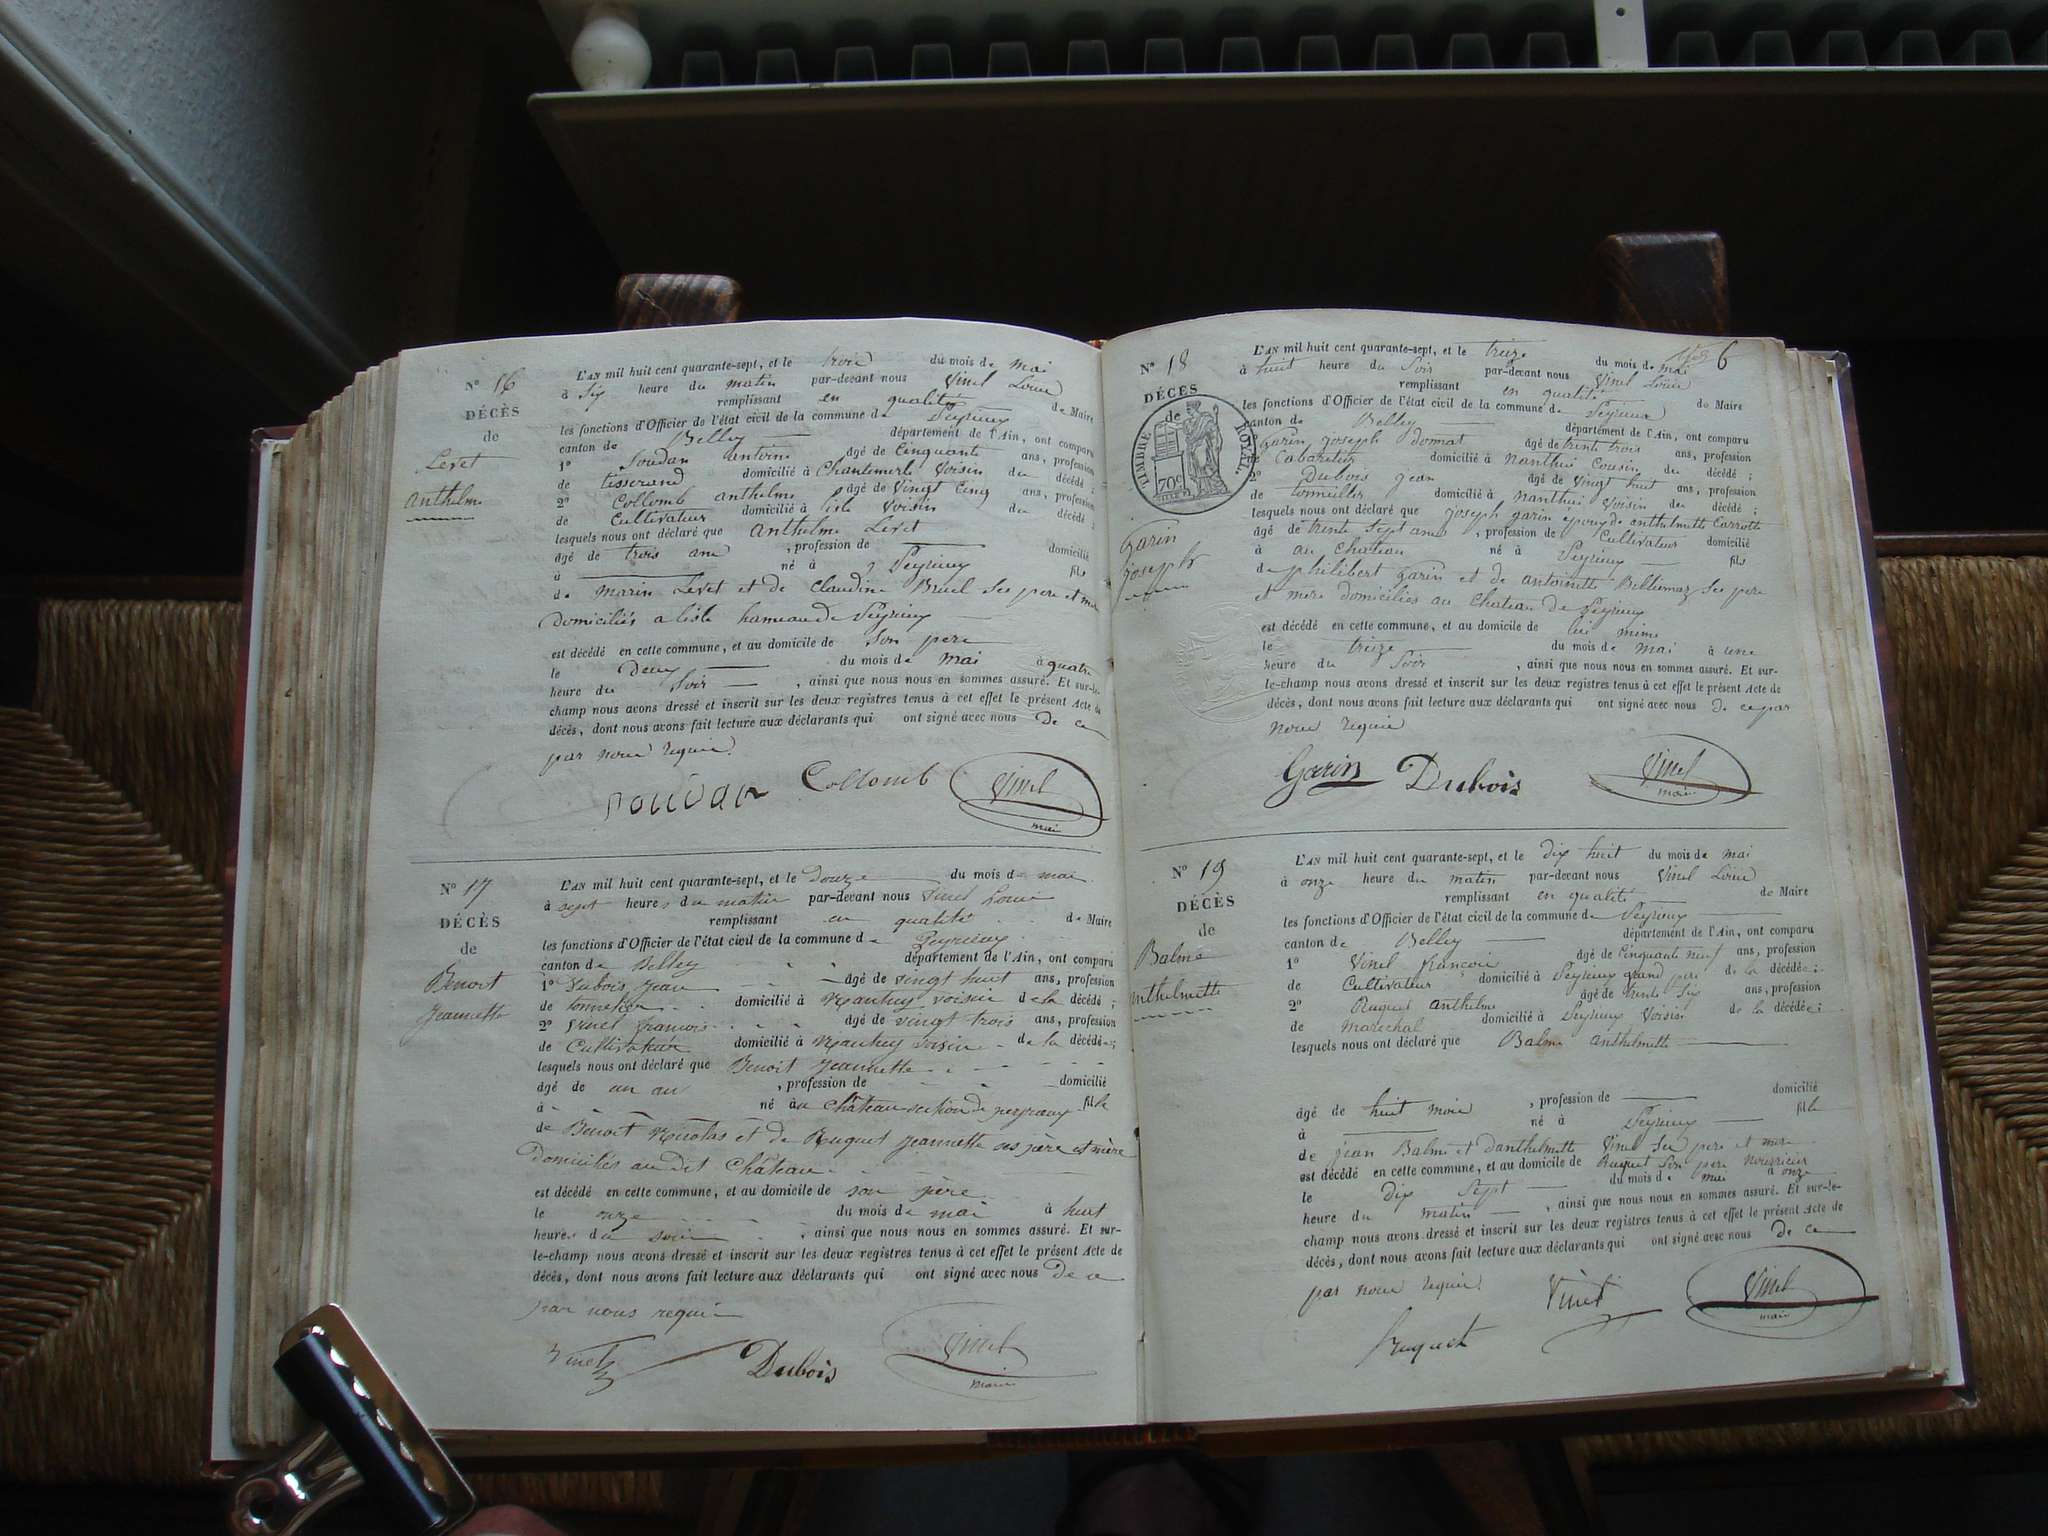 N° 16
DÉCÈS
de
Levet
anthelme
L'AN mil huit cent quarante-sept, et le trois du mois de mai
à six heure du matin par-devant nous Vinel Louis
remplissant en qualité de Maire
les fonctions d'Officier de l'état civil de la commune de Peyrieux
canton de Belley département de l'Ain, ont comparu
1° Soudan antoine âgé de Cinquante ans, profession
de tisserand domicilié à Chantemerle Voisin du décédé ;
2° Collomb anthelme âgé de Vingt Cinq ans, profession
de Cultivateur domicilié à liste Voisin du décédé ;
lesquels nous ont déclaré que anthelme Levet
âgé de trois ans , profession de domicilié
à né à Peyrieux fils
de marin Levet et de Claudine Bruel Ses pere et mere
Domiciliés a liste hameau de Peyrieux
est décédé en cette commune, et au domicile de Son pere
le Deux du mois de mai à quatre
heure du Soir , ainsi que nous nous en sommes assuré. Et sur-le-
champ nous avons dressé et inscrit sur les deux registres tenus à cet effet le présent Acte de
décès, dont nous avons fait lecture aux déclarants qui ont signé avec nous de ce
par nous requis.
Soudan Collomb Vinel
maire
N° 17
DÉCÈS
de
Benoit
Jeannette
L'AN mil huit cent quarante-sept, et le douze du mois de mai
à sept heures du matin par-devant nous Vinel Louis
remplissant en qualité de Maire
les fonctions d'Officier de l'état civil de la commune de Peyrieux
canton de Belley département de l'Ain, ont comparu
1° Dubois Jean âgé de vingt huit ans, profession
de tonnelier domicilié à Nanthuy voisin de la décédé ;
2° Vinel francois âgé de vingt trois ans, profession
de Cultivateur domicilié à Nanthuy voisin de la décédée ;
lesquels nous ont déclaré que Benoit Jeannette
âgé de un an , profession de domicilié
à né au Château section de peyrieux fille
de Benoit Nicolas et de Ruquet Jeannette ses père et mère
Domiciliés au dit Château
est décédé en cette commune, et au domicile de son père
le onze du mois de mai à huit
heures du soir , ainsi que nous nous en sommes assuré. Et sur-
le-champ nous avons dressé et inscrit sur les deux registres tenus à cet effet le présent Acte de
décès, dont nous avons fait lecture aux déclarants qui ont signé avec nous De ce
par nous requis
Vinel Dubois Vinel
maire
6
N° 18
DÉCÈS
de
TIMBRE ROYAL
70c
Garin
joseph
L'AN mil huit cent quarante-sept, et le treize du mois de mai
à huit heure du Soir par-devant nous Vinel Louis
remplissant en qualité de Maire
les fonctions d'Officier de l'état civil de la commune de Peyrieux
canton de Belley département de l'Ain, ont comparu
1° Garin joseph donnat âgé de trente trois ans, profession
de Cabaretier domicilié à nanthui Cousin du décédé ;
2° Dubois jean âgé de Vingt huit ans, profession
de tonnellier domicilié à nanthui Voisin du décédé ;
lesquels nous ont déclaré que joseph garin epoux de anthelmette Carrotte
âgé de trente sept ans , profession de Cultivateur domicilié
à au Chateau né à Peyrieux fils
de philibert garin et de antoinette Beltiemaz Ses pere
et mere domiciliés au Chateau de Peyrieux
est décédé en cette commune, et au domicile de lui même
le treize du mois de mai à une
heure du Soir , ainsi que nous nous en sommes assuré. Et sur-
le-champ nous avons dressé et inscrit sur les deux registres tenus à cet effet le présent Acte de
décès, dont nous avons fait lecture aux déclarants qui ont signé avec nous de ce par
nous requis
Garin Dubois Vinel
maire
N° 19
DÉCÈS
de
Balme
anthelmette
L'AN mil huit cent quarante-sept, et le dix huit du mois de mai
à onze heure du matin par-devant nous Vinel Louis
remplissant en qualité de Maire
les fonctions d'Officier de l'état civil de la commune de Peyrieux
canton de Belley département de l'Ain, ont comparu
1° Vinel françois âgé de Cinquante neuf ans, profession
de Cultivateur domicilié à Peyrieux grand pere de la décédée ;
2° Ruquet anthelme âgé de trente Six ans, profession
de marechal domicilié à Peyrieux Voisin de la décédée ;
lesquels nous ont déclaré que Balme anthelmette
âgé de huit mois , profession de domicilié
à né à Peyrieux fille
de jean Balme et d'anthelmette Vinel Ses pere et mere
est décédé en cette commune, et au domicile de Ruquet Son pere nourricier
le dix Sept du mois de mai à onze
heure du matin , ainsi que nous nous en sommes assuré. Et sur-le-
champ nous avons dressé et inscrit sur les deux registres tenus à cet effet le présent Acte de
décès, dont nous avons fait lecture aux déclarants qui ont signé avec nous de ce
par nous requis.
Vinel Vinel
maire
Ruquet